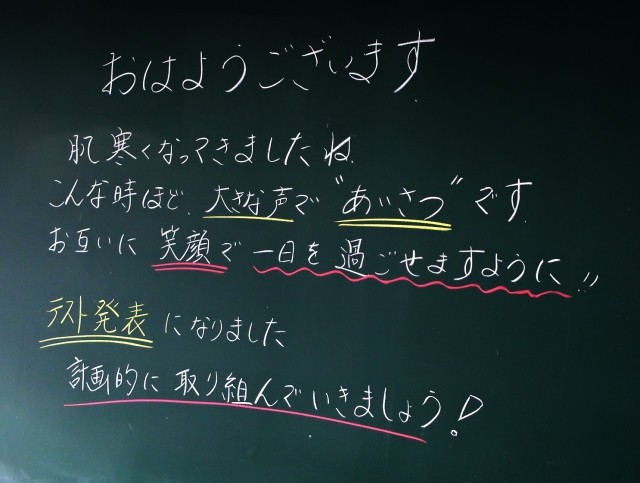 おはようございます
肌寒くなってきましたね.
こんな時ほど、大きな声で"あいさつ"です.
お互いに笑顔で一日を過ごせますように!!
テスト発表になりました
計画的に取り組んでいきましょう!